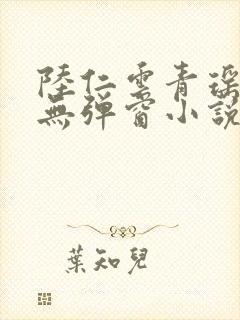 陸仁雲青瑶
無彈窗小說
葉知兒